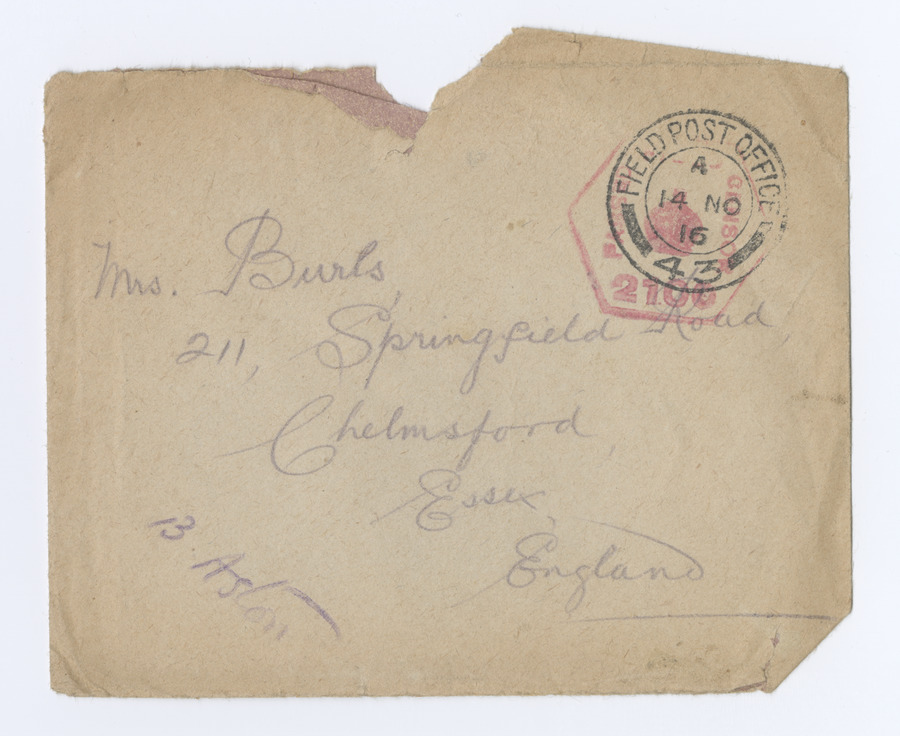 FIELD POST OFFICE
A
14 NO
16
43
PASSED CENSOR
Mrs. Burls,
211, Springfield Road,
Chelmsford
Essex,
England
B Aston